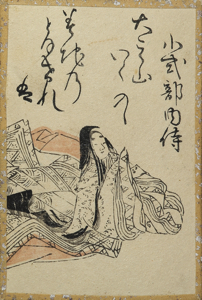 小式部内侍
大江山
いくの
の
みちの
とほけれ
は